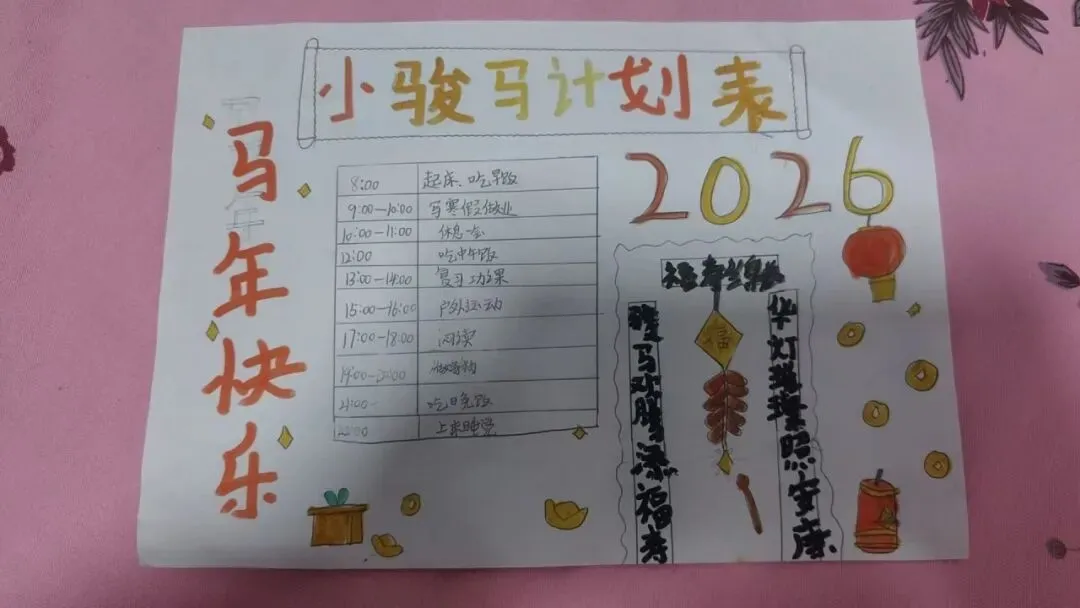 小骏马计划表
马年快乐
8:00 起床、吃早饭
9:00—10:00 写寒假作业
10:00—11:00 休息一会
12:00 吃中午饭
13:00—14:00 复习功课
15:00—16:00 户外运动
17:00—18:00 阅读
19:00—20:00
21:00 吃晚饭
22:00 上床睡觉
2026
福
骏马欢腾添福寿
华灯璀璨照安康